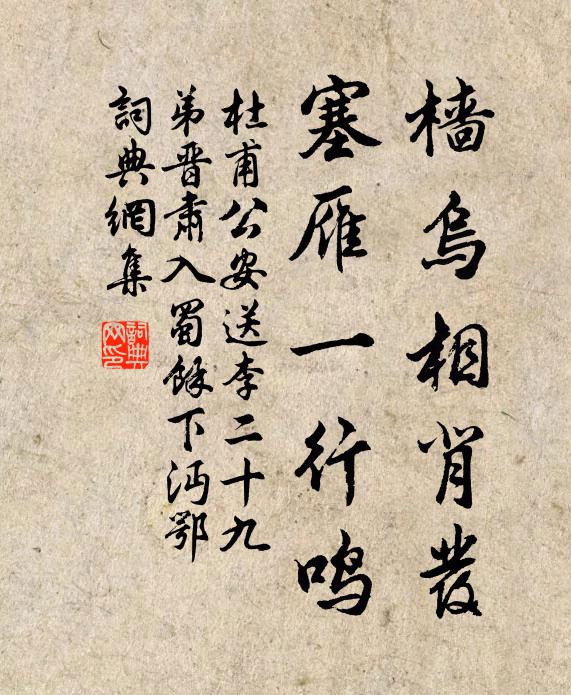 檣烏相背發
塞雁一行鳴
杜甫公安送李二十九
弟晋肅入蜀餘下沔鄂
詞典網集
詞典网印